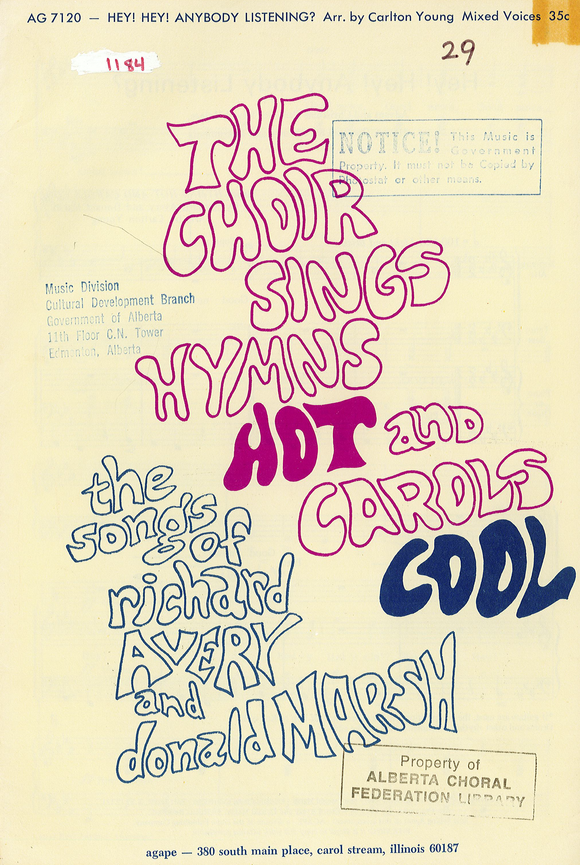 AG 7120 — HEY! HEY! ANYBODY LISTENING? Arr. by Carlton Young Mixed Voices 35c
29
1184
THE
CHOIR
SINGS
HYMNS
HOT and
CAROLS
COOL
NOTICE! This Music is
Government
Property. It must not be Copied by
Photostat or other means.
Music Division
Cultural Development Branch
Government of Alberta
11th Floor C.N. Tower
Edmonton, Alberta
the
songs
of
richard
AVERY
and
donald MARSH
Property of
ALBERTA CHORAL
FEDERATION LIBRARY
agape — 380 south main place, carol stream, illinois 60187